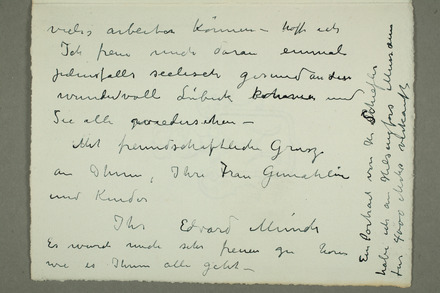 vieles arbeiten können – hoffe ich
Ich freue mich daran einmal
jedenfalls seelisch gesund an den
wundervoll Lübeck kommen und
Sie alle wiedersehen –
Mit freundschaftlichen Grusz
an Ihnen, Ihre Frau Gemahlin
und Kinder
Ihr Edvard Munch
Es würde mich sehr freuen zu hören
wie es Ihnen alle geht –
Ein Portrait von H Schiefler
habe ich an Helsingfors Museum
für 4000 Mark verkauft